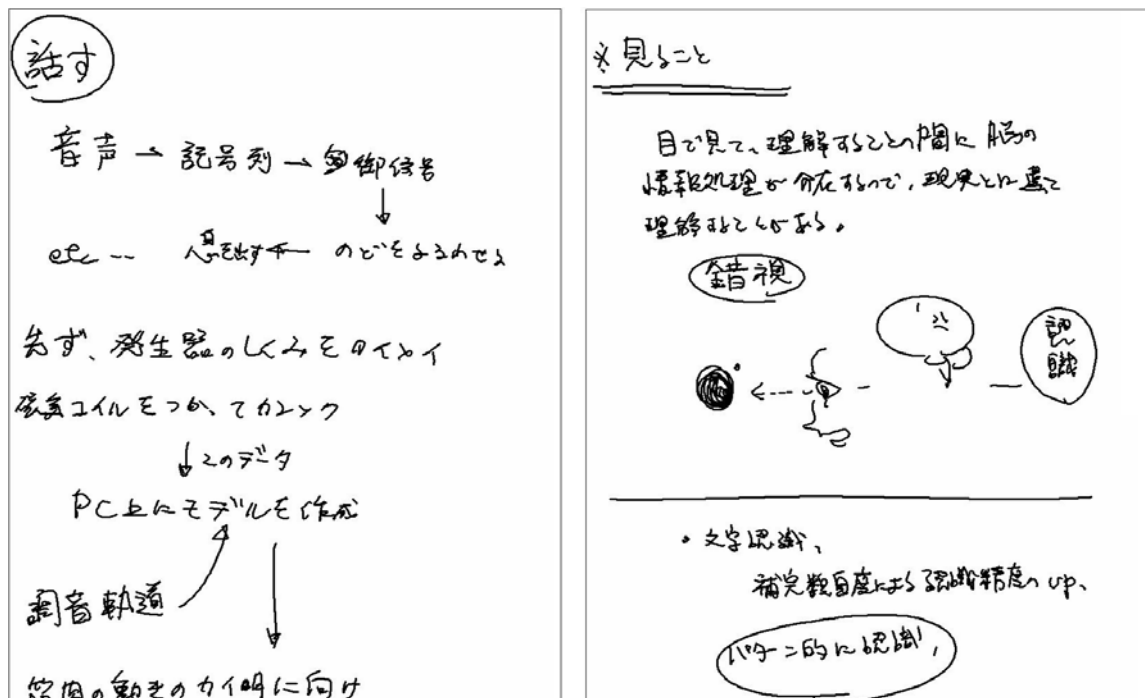 話す
音声 → 記号列 → 制御信号
↓
etc … 息を出す ← のどをふるわせる
先ず、発生器のしくみを
磁気コイルをつかって
↓ このデータ
PC上にモデルを作成
調音軌道
の動きのカイ明に向け
※見ること
目で見て、理解することの間に 脳の
情報処理が介在するので、現実とは違て
理解することがある。
錯視
認識
・文字認識、
補完 による認識精度のup、
パターン的に認識、